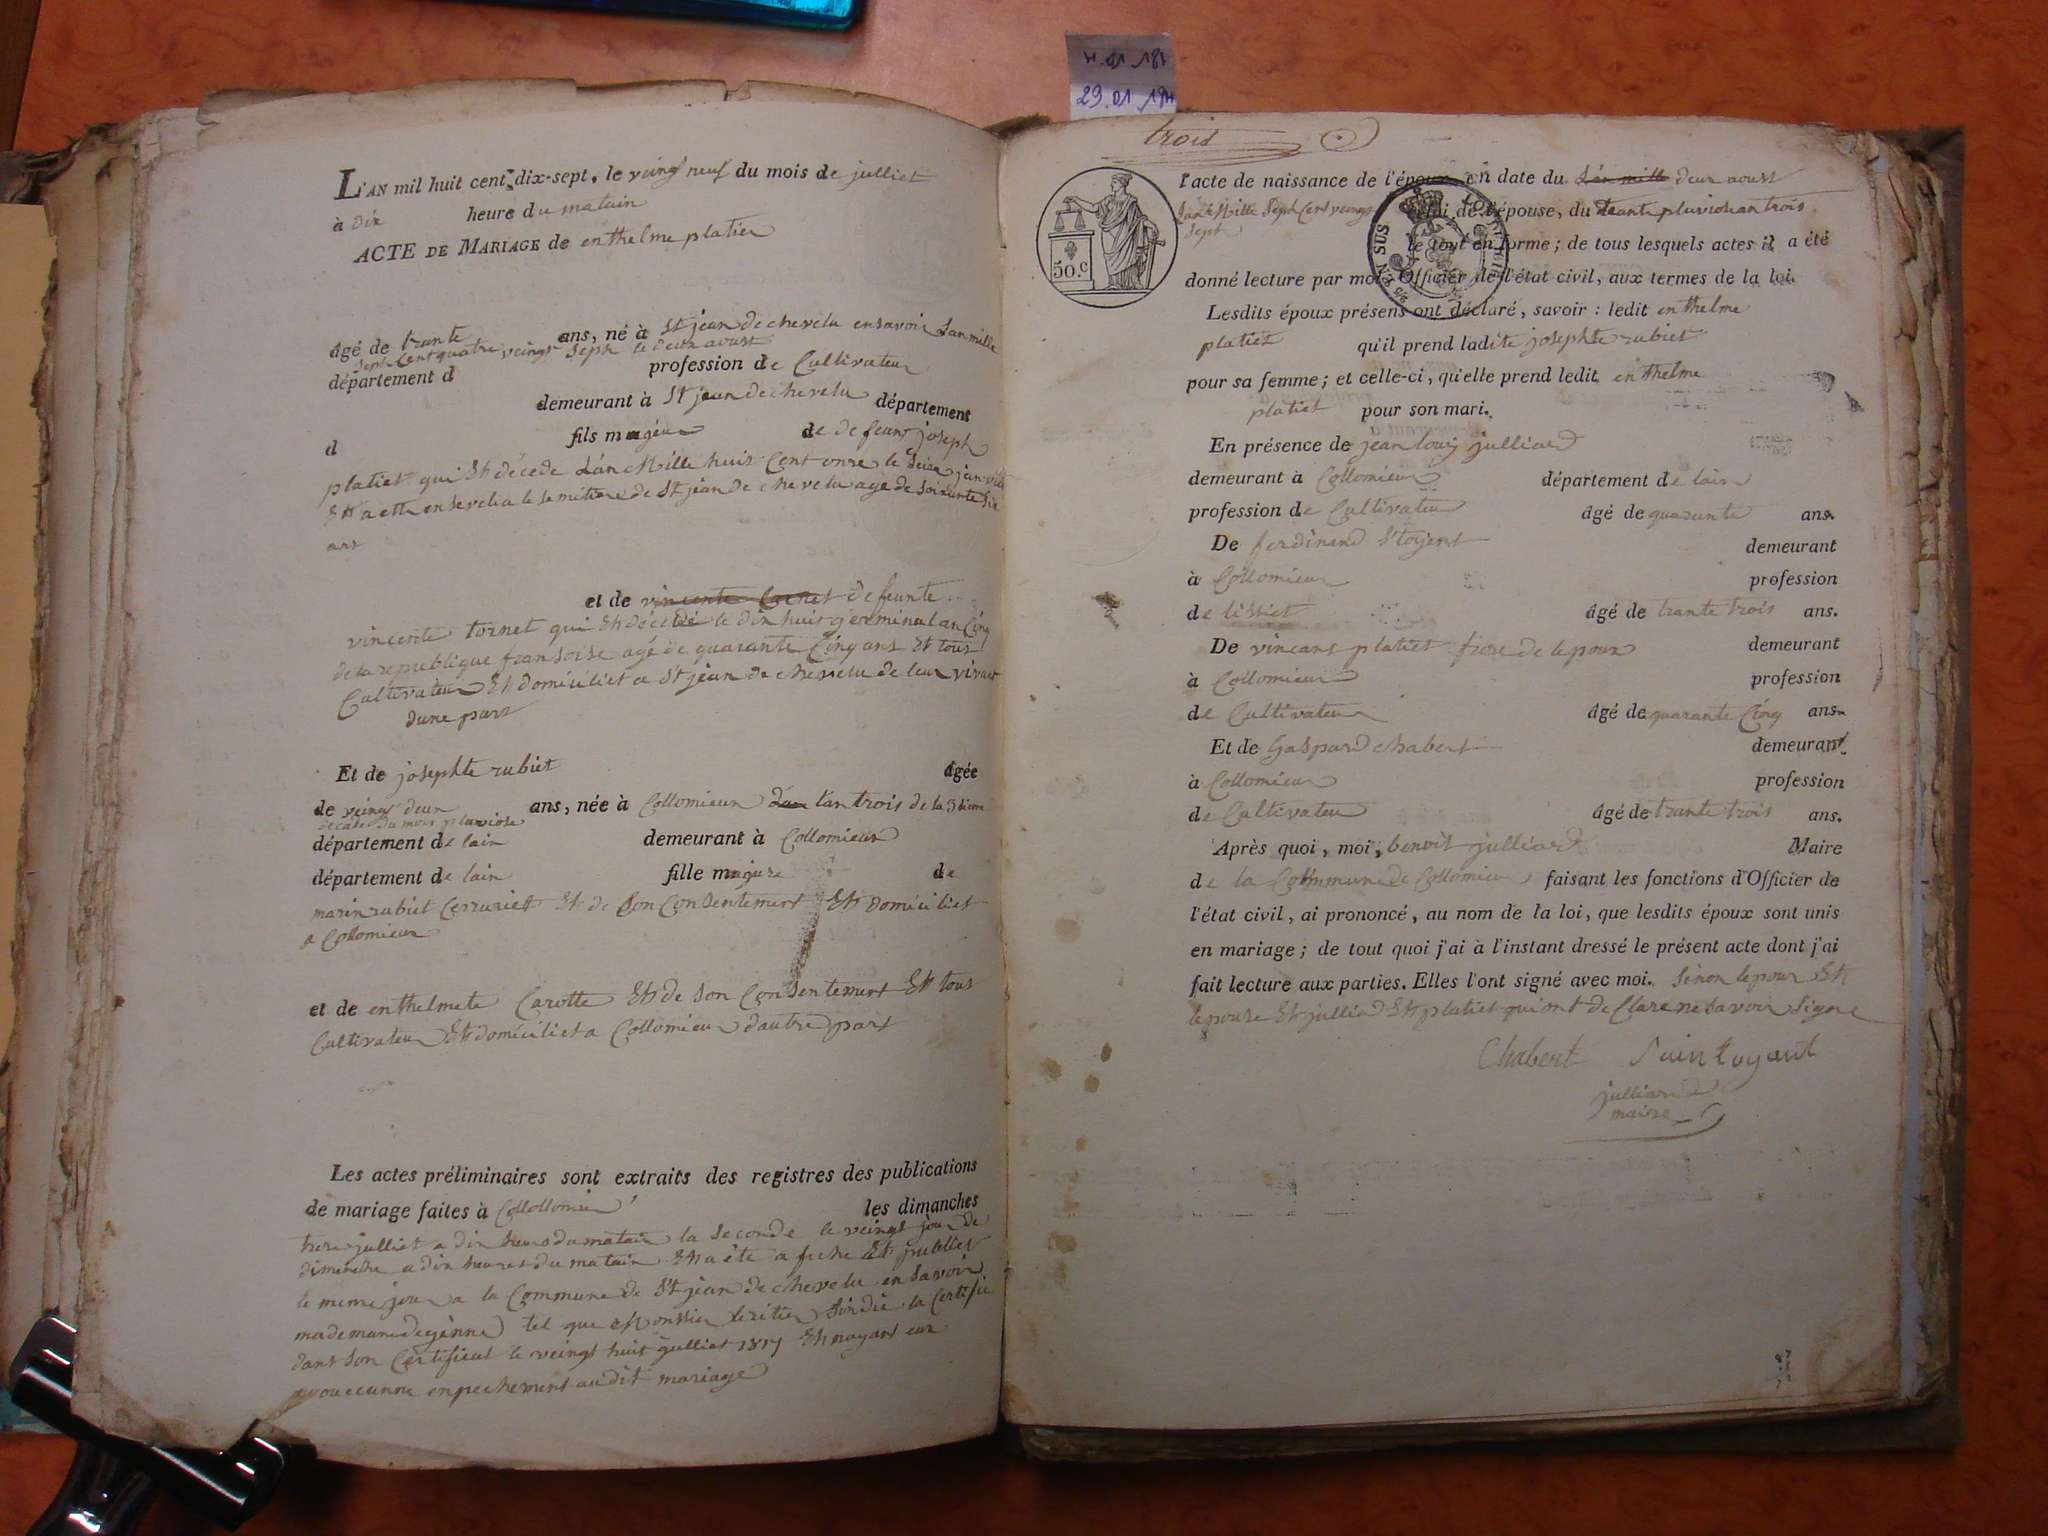 29.01.18
L'AN mil huit cent dix-sept, le veing neuf du mois de julliet
à dix heure du matain
ACTE DE MARIAGE de enthelme platiet
âgé de trante ans, né à St jean de chevelu en savoir Lan mille
Seph Cent quatre veingt Seph le deux aoust
département d profession de Cultivateur
demeurant à St jean de chevelu département
d fils majeur de defeunt joseph
platiet qui Et décede L'an Mille huit Cent onze le janvié
Et a ett ensevelia le semitiere de St jean de chevelu age de soisante six
ans
et de vincente Cornet defeunte
vincente tornet qui Et décédé le dix huit germinal an Cinq
de la republique fransoise agé de quarante Cinq ans Et tous
Cultivateur Et domiciliet a St jean de chevelu de leur vivant
dune part
Et de josephte rubiet âgée
de veingt deux ans, née à Collomieux L'an trois de la 3 ieme
decade du mois pluviose
département de lain demeurant à Collomieux
département de lain fille majure de
marin rubiet Cerruriet Et de Son Consentement Et domiciliet
a Collomieux
et de enthelmete Carotte Et de Son Consentement Et tous
Cultivateur Et domiciliet a Collomieux dautre part
Les actes préliminaires sont extraits des registres des publications
de mariage faites à Collollomieu les dimanches
treze julliet a dix heures du matain la seconde le veingt jour de
dimenche a dix heures du matain Et a éte a fiche Et publiet
le meme jour a la Commune de St jean de chevelu en Savoir
ma demande tel que Monssieu Sindic la Certifié
dans son Certificat le veingt huit julliet 1817 Et nayant eux
avouccunne enpechement audit mariage
trois
l'acte de naissance de l'époux en date du L'an mille deux aoust
Lan Mille Seph Cent veingt celui de l'épouse, du trante pluviose an trois
sept
le tout en forme; de tous lesquels actes il a été
50.c
EN SUS
donné lecture par moi Officier de l'état civil, aux termes de la loi.
Lesdits époux présens ont déclaré, savoir : ledit enthelme
platiet qu'il prend ladite josephte rubiet
pour sa femme; et celle-ci, qu'elle prend ledit enthelme
platiet pour son mari.
En présence de jean louis julliard
demeurant à Collomieux département de lain
profession de Cultivateur âgé de quarante ans.
De ferdinand St oyent demeurant
à Collomieux profession
de tissiet âgé de trante trois ans.
De vincans platiet frere de lepoux demeurant
à Collomieux profession
de Cultivateur âgé de quarante Cinq ans.
Et de Gaspard chabert demeurant
à Collomieux profession
de Cultivateur âgé de trante trois ans.
Après quoi, moi, benoit julliard Maire
de la Commune de Collomieu faisant les fonctions d'Officier de
l'état civil, ai prononcé, au nom de la loi, que lesdits époux sont unis
en mariage; de tout quoi j'ai à l'instant dressé le présent acte dont j'ai
fait lecture aux parties. Elles l'ont signé avec moi. Sinon lepoux Et
lepouse Et julliard Et platiet qui ont de Clare ne Savoir Signe
Chabert Saintoyant
julliard
maire